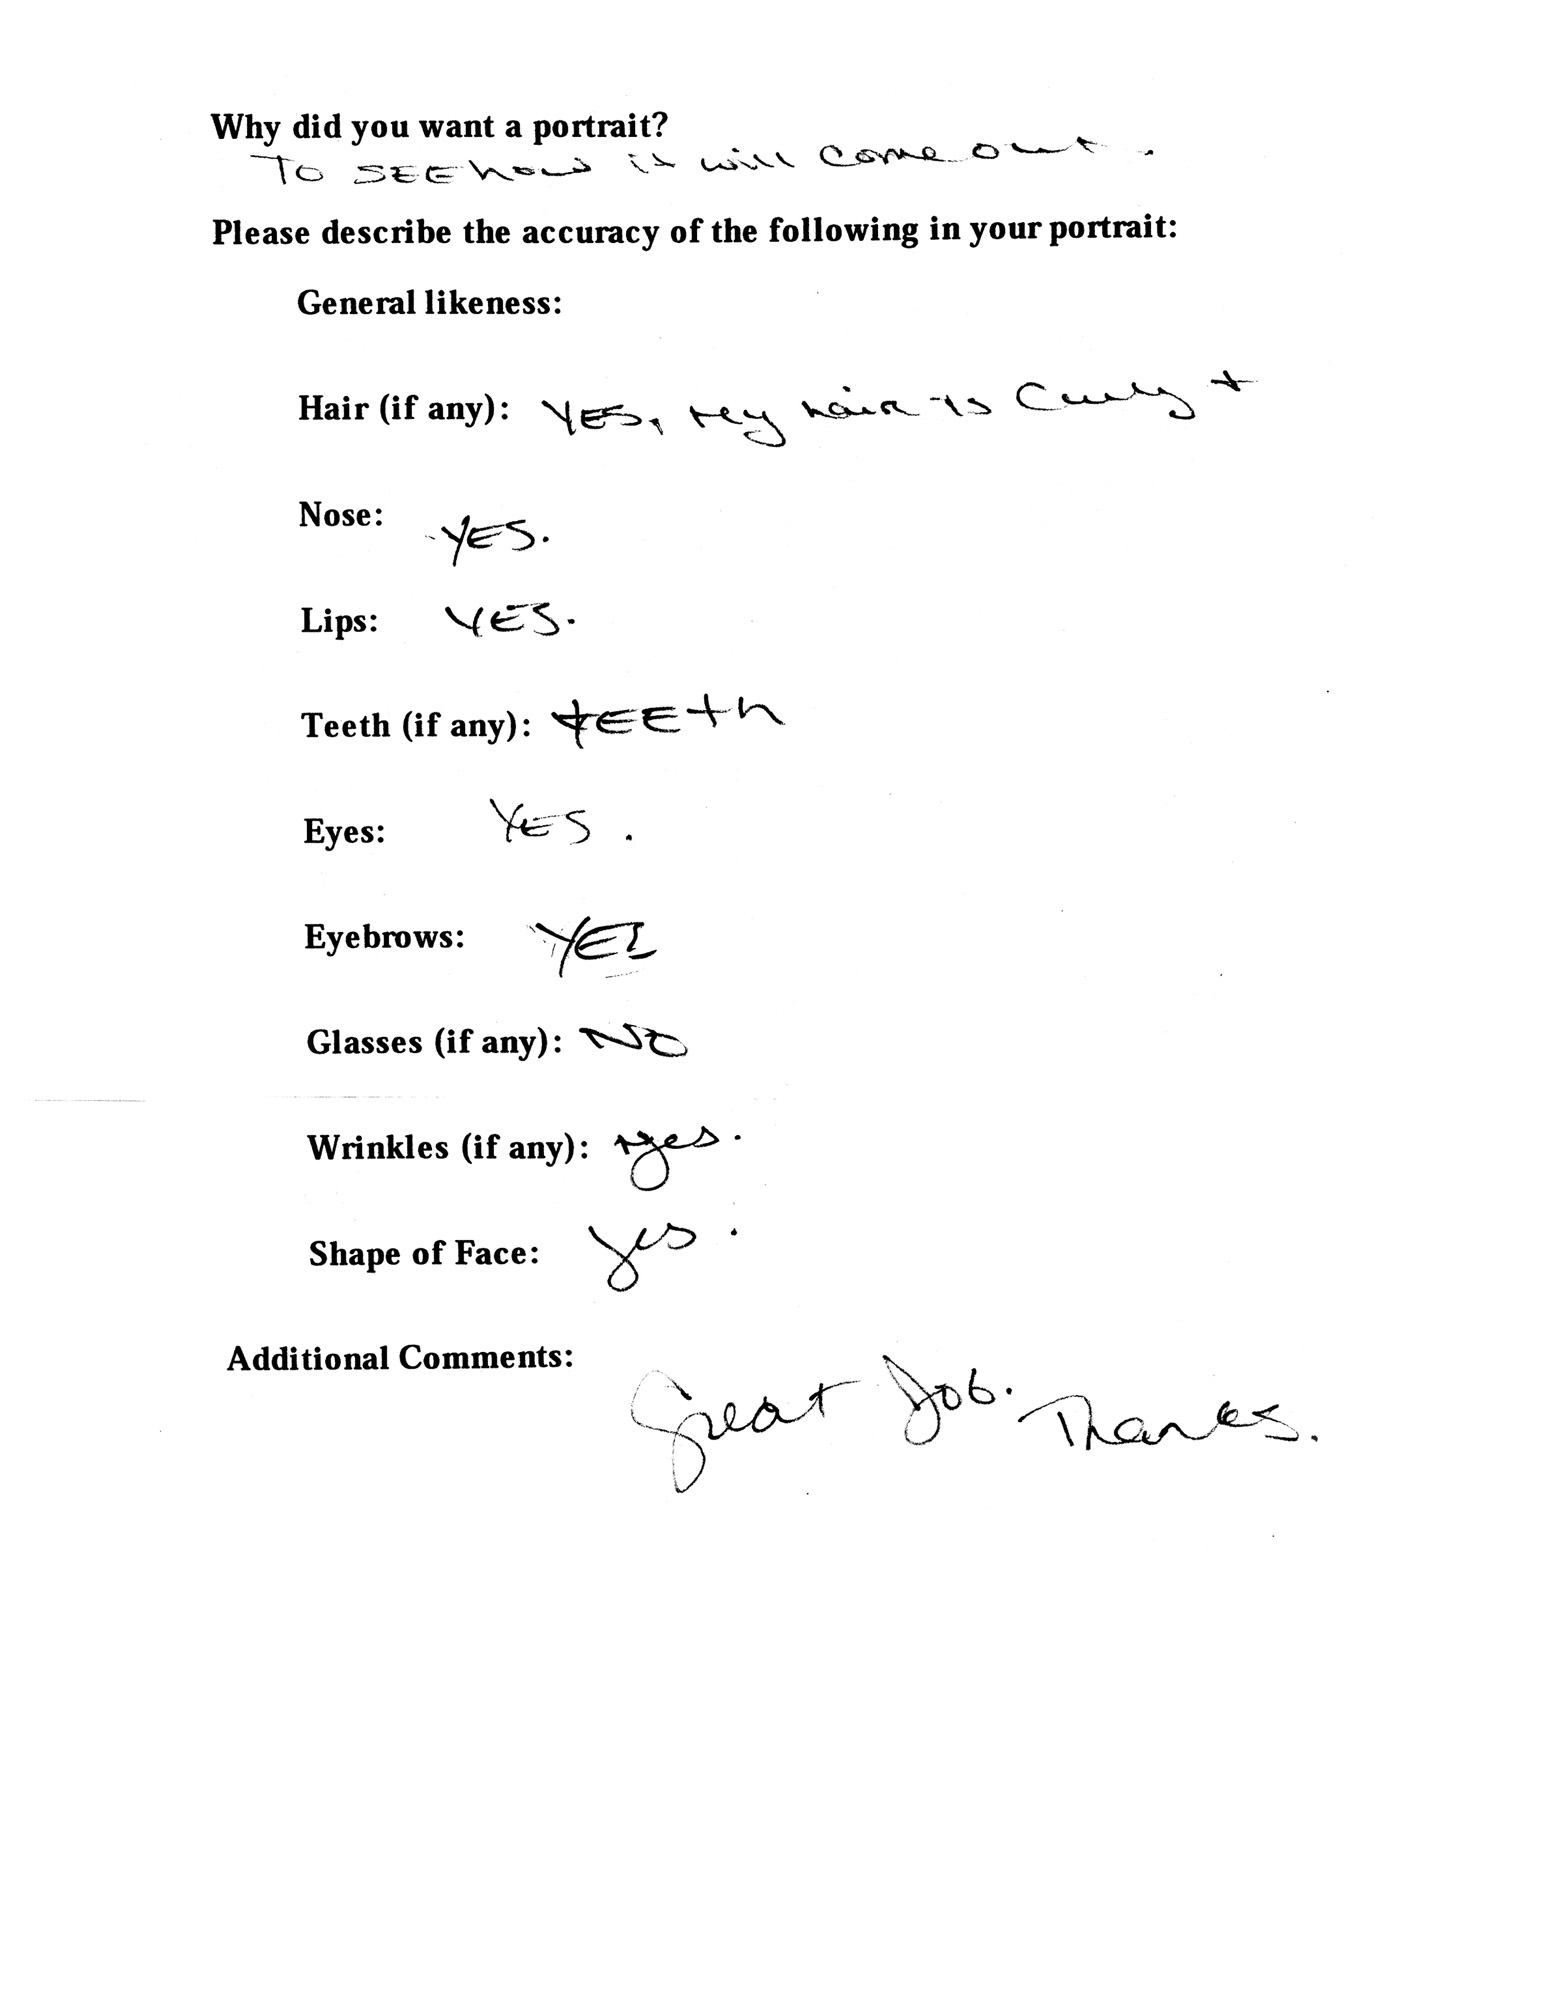 Why did you want a portrait?
To SEE how it will come out.
Please describe the accuracy of the following in your portrait:
General likeness:
Hair (if any): YES, My hair is Curly +
Nose: YES.
Lips: YES.
Teeth (if any): tEEth
Eyes: YES.
Eyebrows: YES
Glasses (if any): NO
Wrinkles (if any): yes.
Shape of Face: yes.
Additional Comments:
Great Job. Thanks.